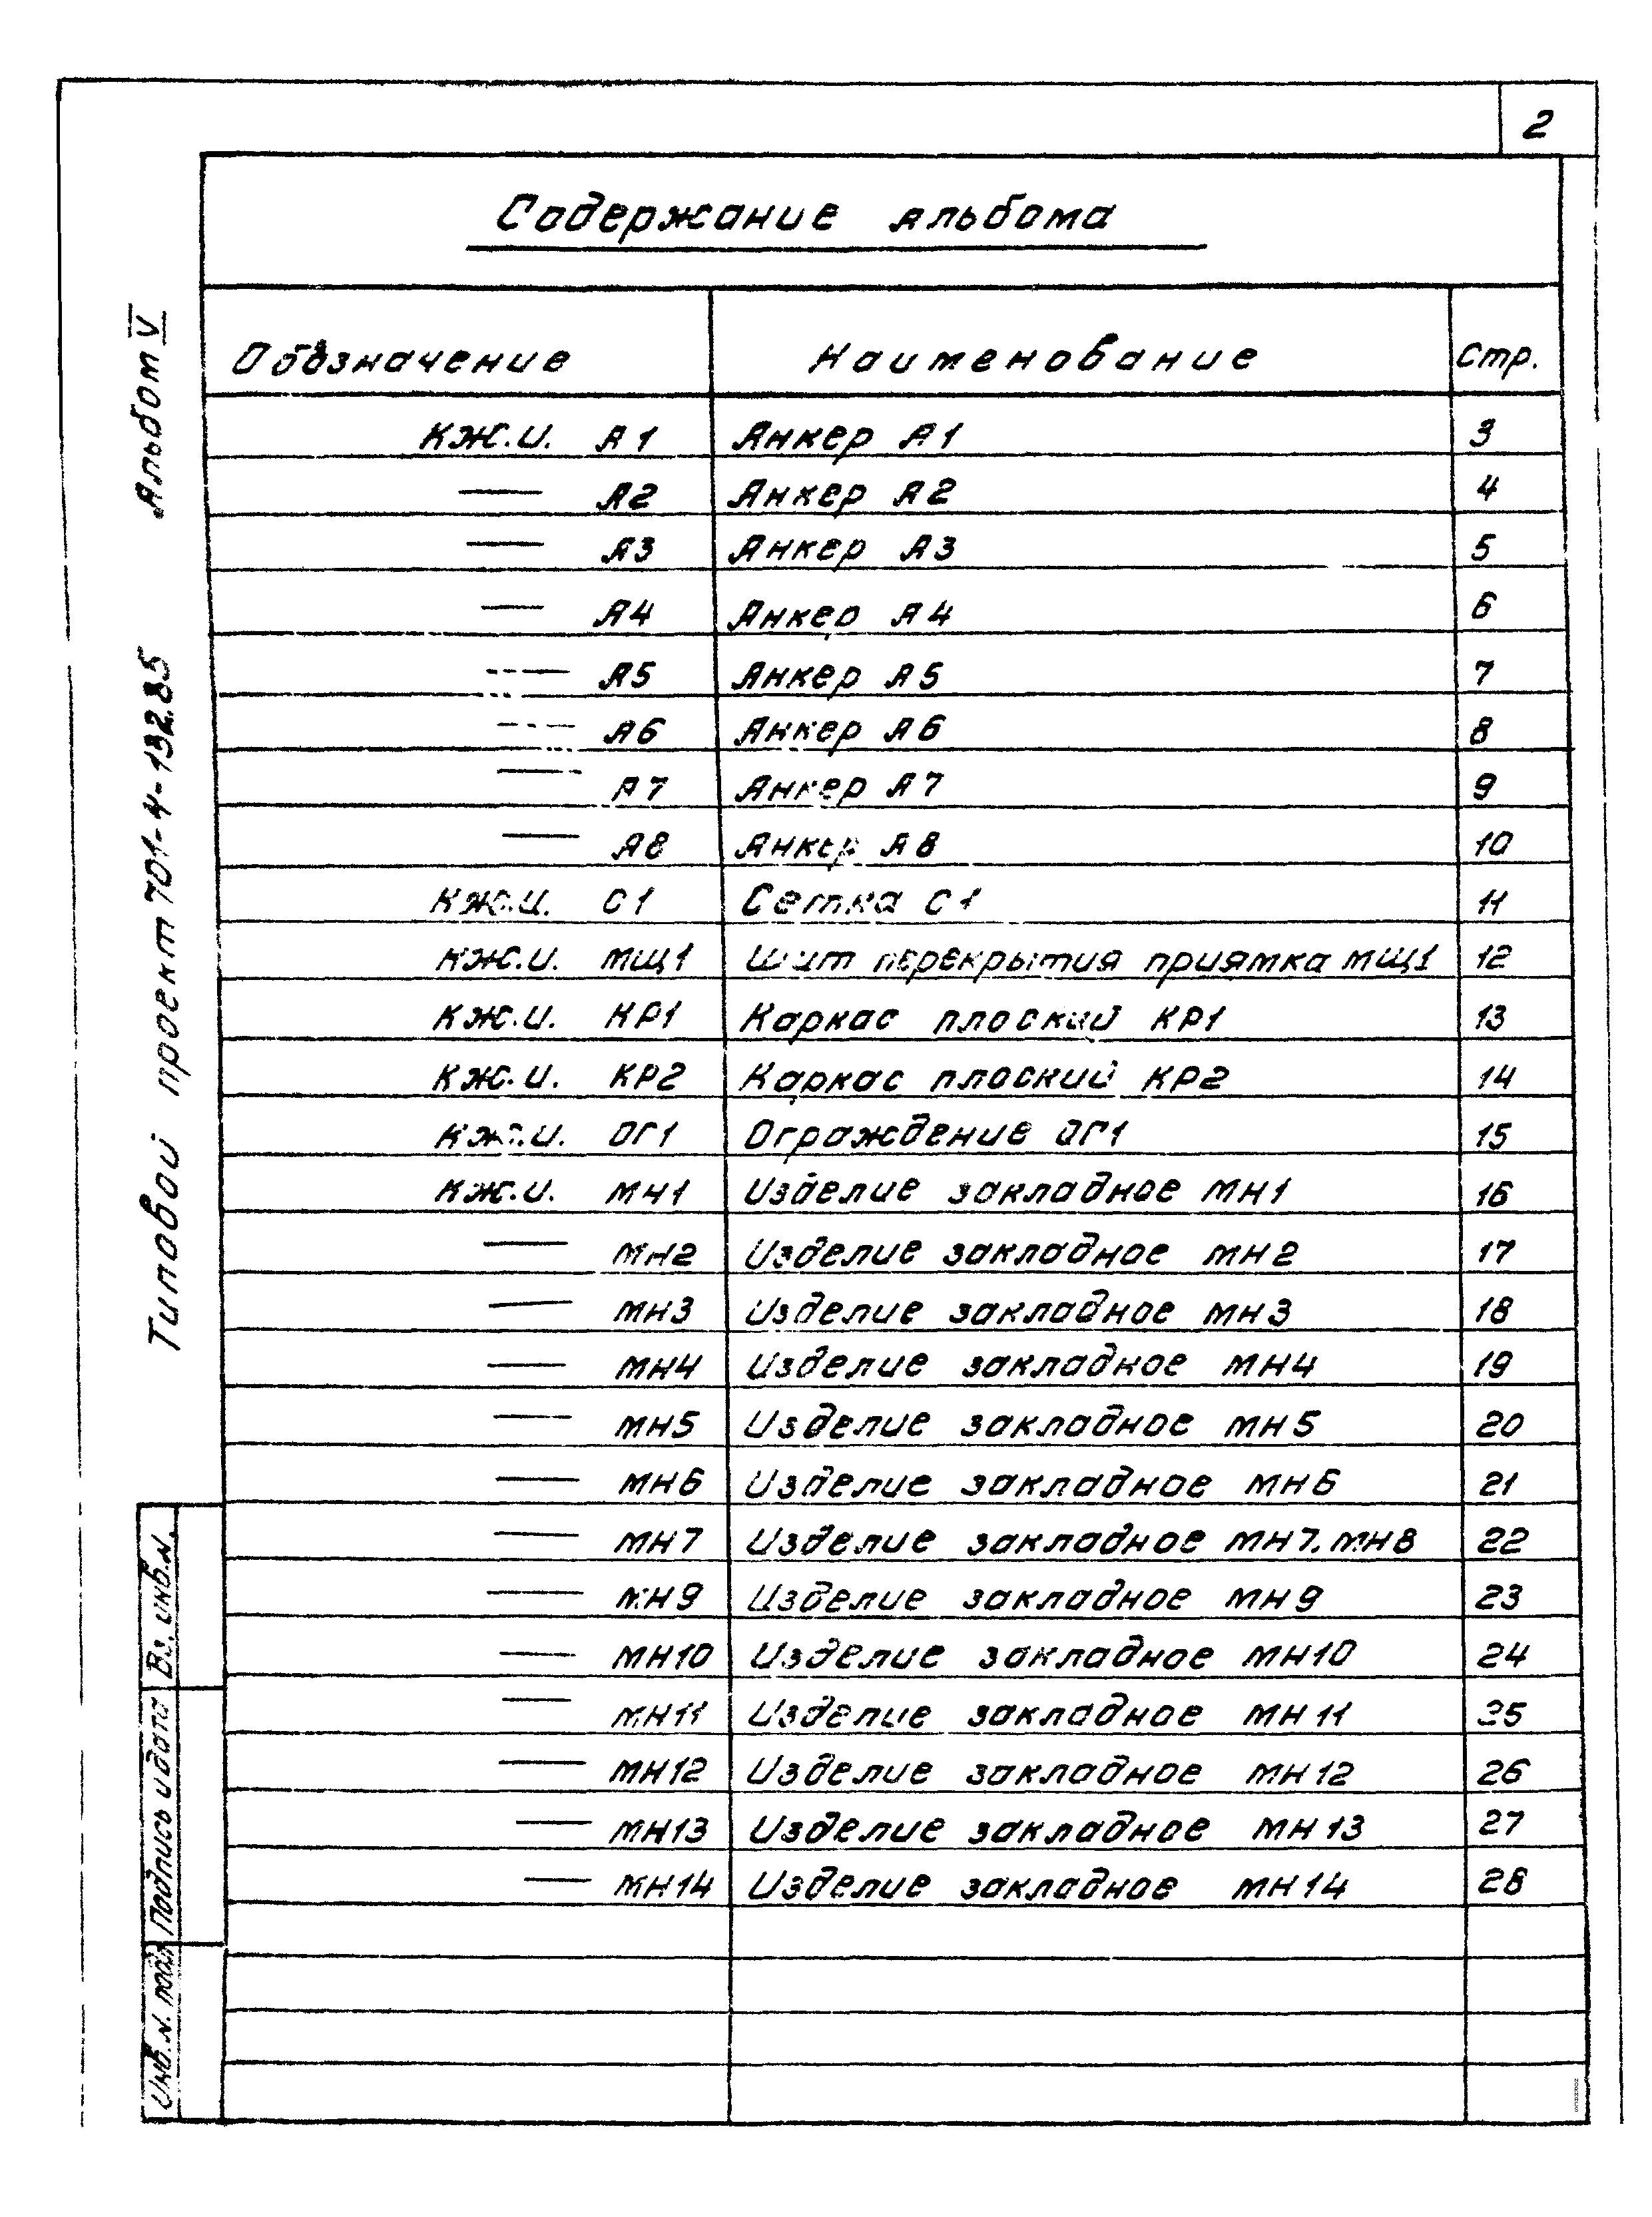 2
Содержание альбома
Обозначение Наименование Стр.
КЖ.И. А1 Анкер А1 3
— А2 Анкер А2 4
— А3 Анкер А3 5
— А4 Анкер А4 6
— А5 Анкер А5 7
— А6 Анкер А6 8
— А7 Анкер А7 9
— А8 Анкер А8 10
КЖ.И. С1 Сетка С1 11
КЖ.И. МЩ1 Щит перекрытия приямка МЩ1 12
КЖ.И. КР1 Каркас плоский КР1 13
КЖ.И. КР2 Каркас плоский КР2 14
КЖ.И. ОГ1 Ограждение ОГ1 15
КЖ.И. МН1 Изделие закладное МН1 16
— МН2 Изделие закладное МН2 17
— МН3 Изделие закладное МН3 18
— МН4 Изделие закладное МН4 19
— МН5 Изделие закладное МН5 20
— МН6 Изделие закладное МН6 21
— МН7 Изделие закладное МН7. МН8 22
— МН9 Изделие закладное МН9 23
— МН10 Изделие закладное МН10 24
— МН11 Изделие закладное МН11 25
— МН12 Изделие закладное МН12 26
— МН13 Изделие закладное МН13 27
— МН14 Изделие закладное МН14 28
Типовой проект 701-4-132.85 Альбом V
Вз. инв. N.
Подпись и дата
Инв. N. подл